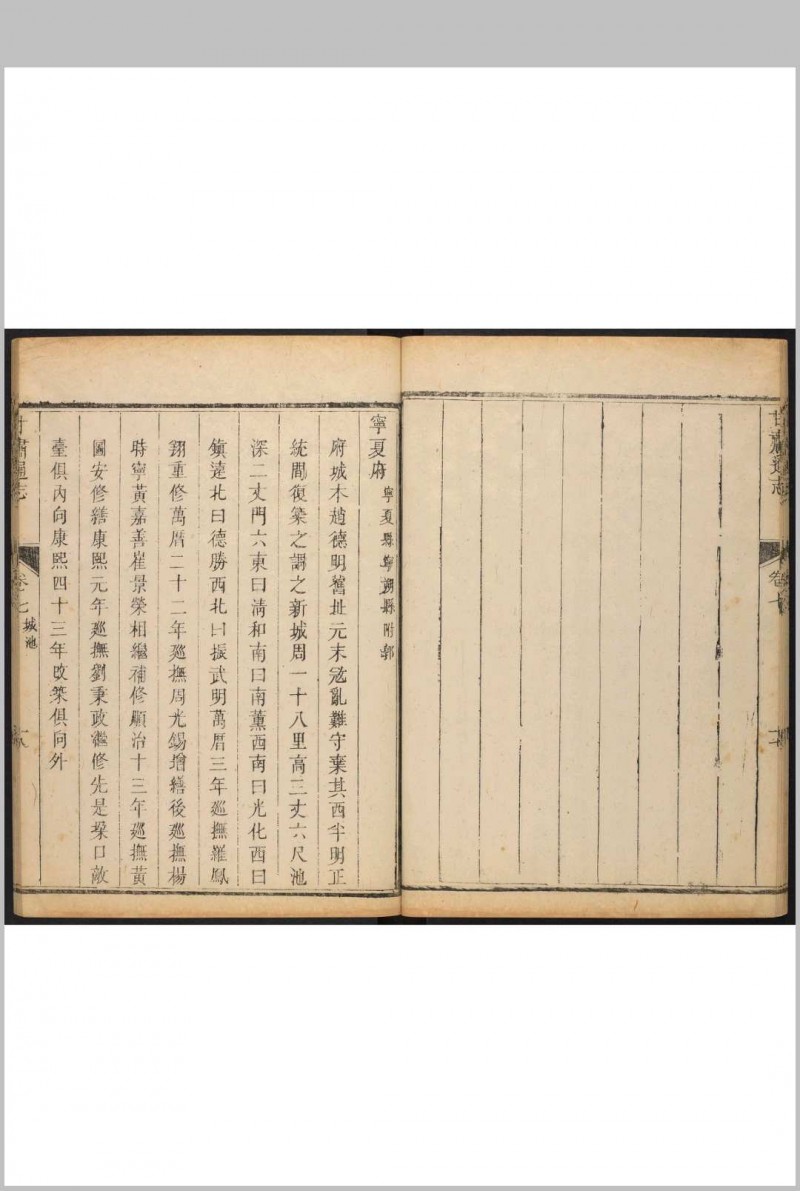 甘肅通志
卷七
寧夏府 寧夏縣寧朔縣附郭
府城本趙德明舊址元末寇亂難守棄其西半明正
統間復築之謂之新城周一十八里高三丈六尺池
深二丈門六東曰清和南曰南薰西南曰光化西曰
鎮遠北曰德勝西北曰振武明萬曆三年廵撫羅鳳
翱重修萬曆二十二年廵撫周光鎬增繕後廵撫楊
時寧黃嘉善崔景榮相繼補修順治十三年廵撫黃
圖安修繕康熙元年廵撫劉秉政繼修先是垜口敵
臺俱內向康熙四十三年改築俱向外
甘肅通志
卷七 城池
十八